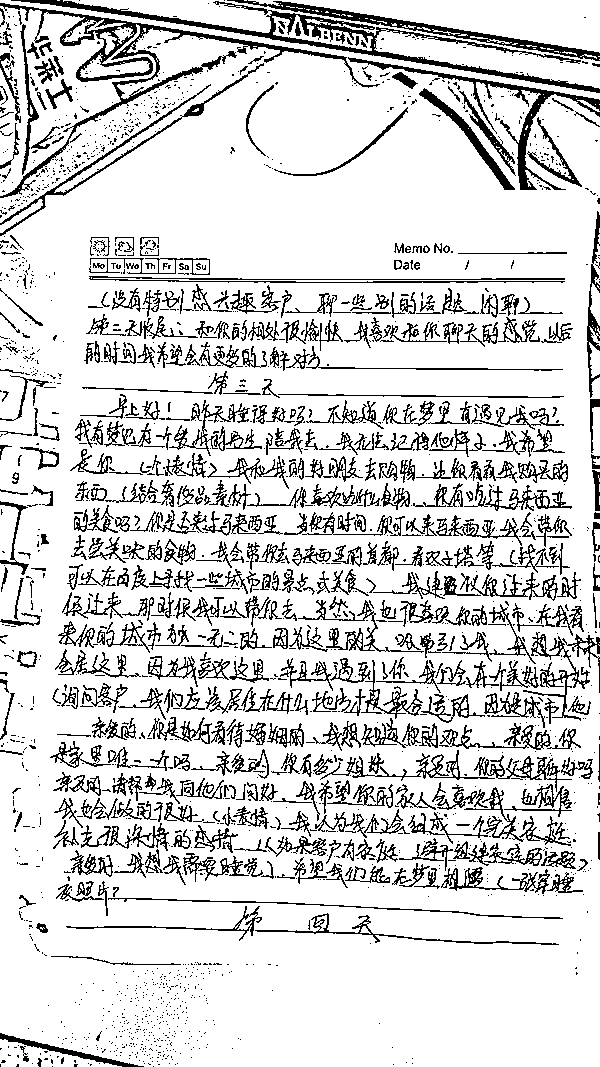 NALBENN
华帝工
Memo No.
Mo Tu We Th Fr Sa Su
Date / /
(没有特别感兴趣客户、聊一些别的话题、闲聊)
第二天收尾：和你的相处很愉快、我喜欢和你聊天的感觉、以后
的时间我希望会有更多的了解对方.
第三天
早上好！昨天睡得好吗？不知道你在梦里有遇见我吗？
我有梦见有一个像我的男生陪我去、我无法记得他样子、我希望
是你、(个表情) 我和我的好朋友去购物、让你看看我购买的
东西 (结合奢侈品素材) 你喜欢吃什么食物、你有吃过马来西亚
的美食吗？你是否来过马来西亚、当你有时间、你可以来马来西亚、我会带你
去尝美味的食物、我会带你去马来西亚的首都、看双子塔等 (找不到
可以在百度上寻找一些城市的景点或美食) 我建议你过来的时
候过来、那时候我可以陪你去、当然、我也很喜欢你的城市、在我看
来你的城市独一无二的、因为这里的美、吸引了我、我想我
会居这里、因为我喜欢这里、并且我遇到了你、我们会有个美好的开始
(询问客户、我们应该居住在什么地方才是最合适的、因
亲爱的、你是如何看待婚姻的、我想知道你的观点、亲爱的、你
是家里唯一一个吗、亲爱的、你有多少姐妹、亲爱的、你的父母都好吗
亲爱的、请帮我向他们问好、我希望你的家人会喜欢我、也相信
我也会做的很好、(小表情) 我认为我们会组成一个完美家庭
补充很深情的感情 (如果客户有家庭、避开组建家庭的话题)
亲爱的、我想我需要睡觉了、希望我们能在梦里相遇 (一张穿睡
衣照片)
第四天
9